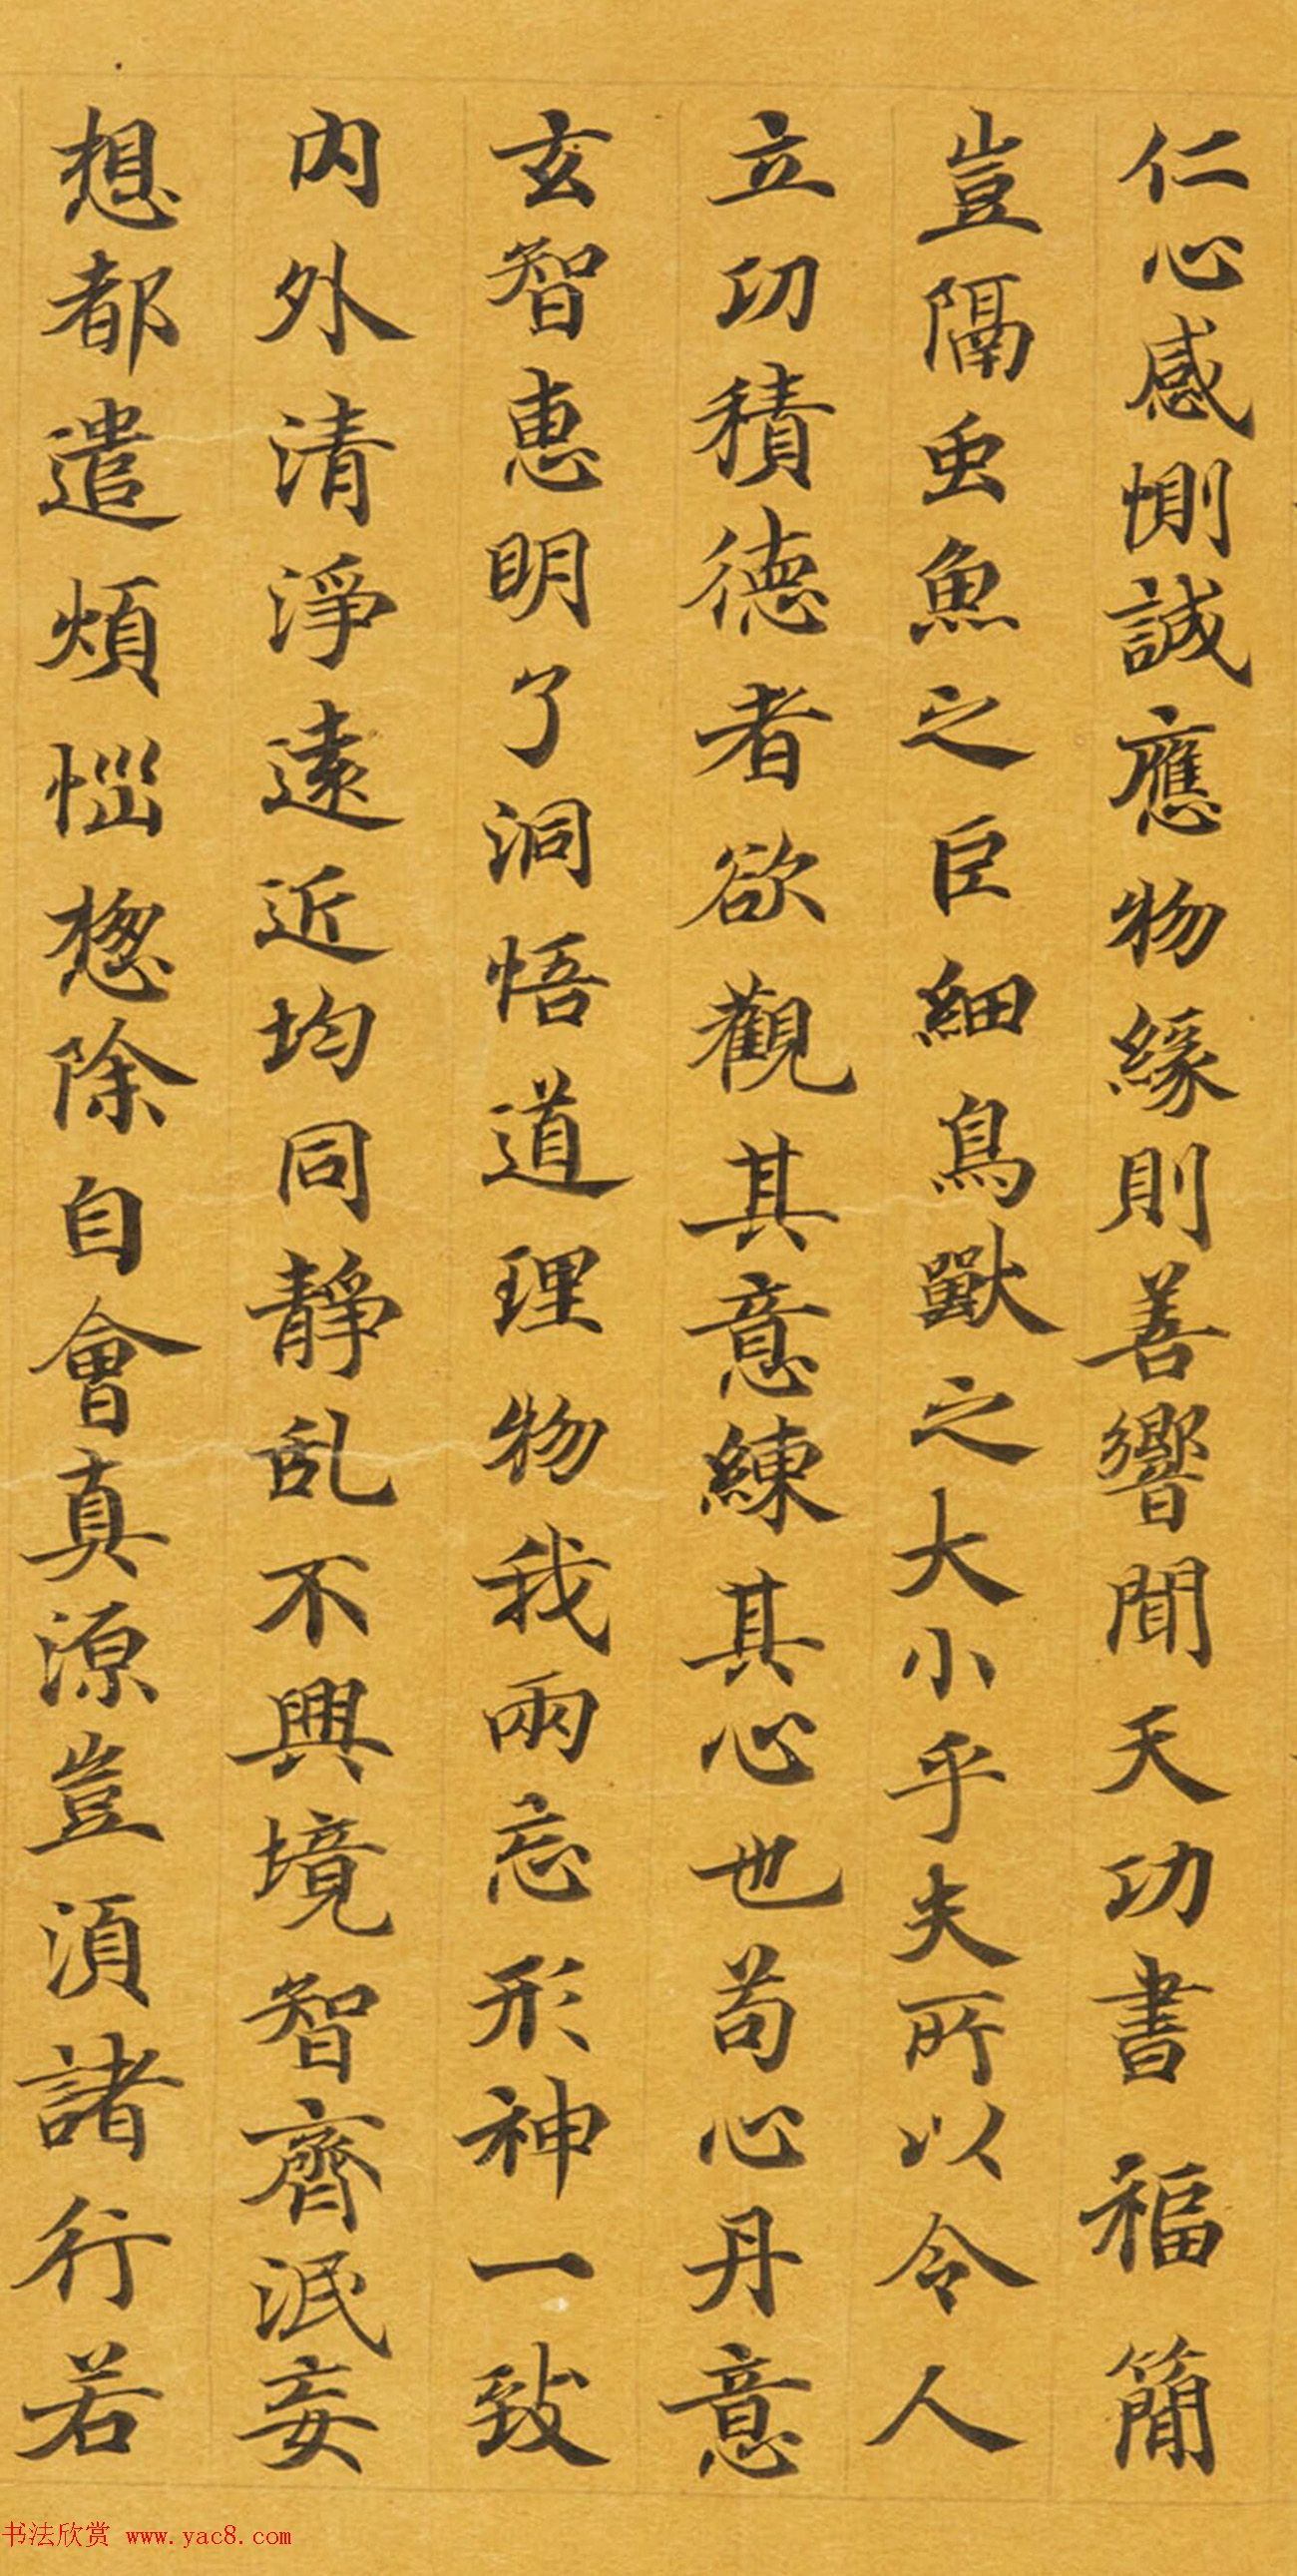 仁心感惻誠應物緣則善響聞天功書福簡
豈隔虫魚之巨細鳥獸之大小乎夫所以令人
立功積德者欲觀其意練其心也苟心丹意
玄智惠明了洞悟道理物我兩忘形神一致
内外清淨遠近均同靜乱不興境智齊泯妄
想都遣煩惱揔除自會真源豈湏諸行若
书法欣赏 www.yac8.com